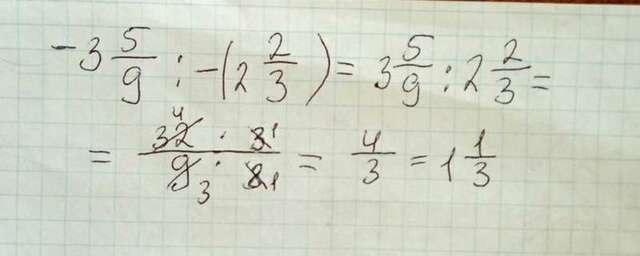 -3 5/9 : -(2 2/3) = 3 5/9 : 2 2/3 =
= 32 4 · 3 1 / 9 3 · 8 1 = 4/3 = 1 1/3